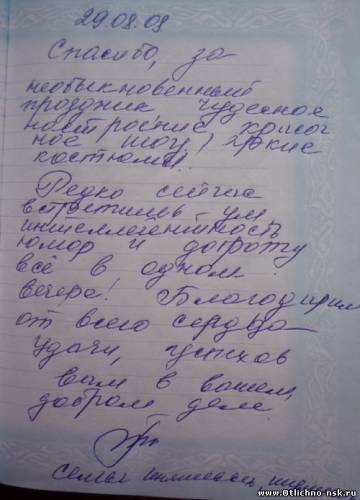 29.08.08
Спасибо, за
необыкновенный
праздник чудесное
настроение красоч
ное шоу, яркие
костюмы!
Редко сейчас
встретишь ум
интеллегентность
юмор и доброту
всё в одном
вечере! Благодарим
от всего сердца
удачи, успехов
вам в вашем,
добром деле
Семья
www.Otlichno-nsk.ru